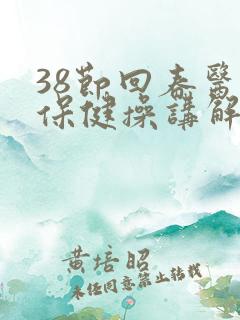 38節回春醫
保健操講解
黃培昭
未任同意禁止转载